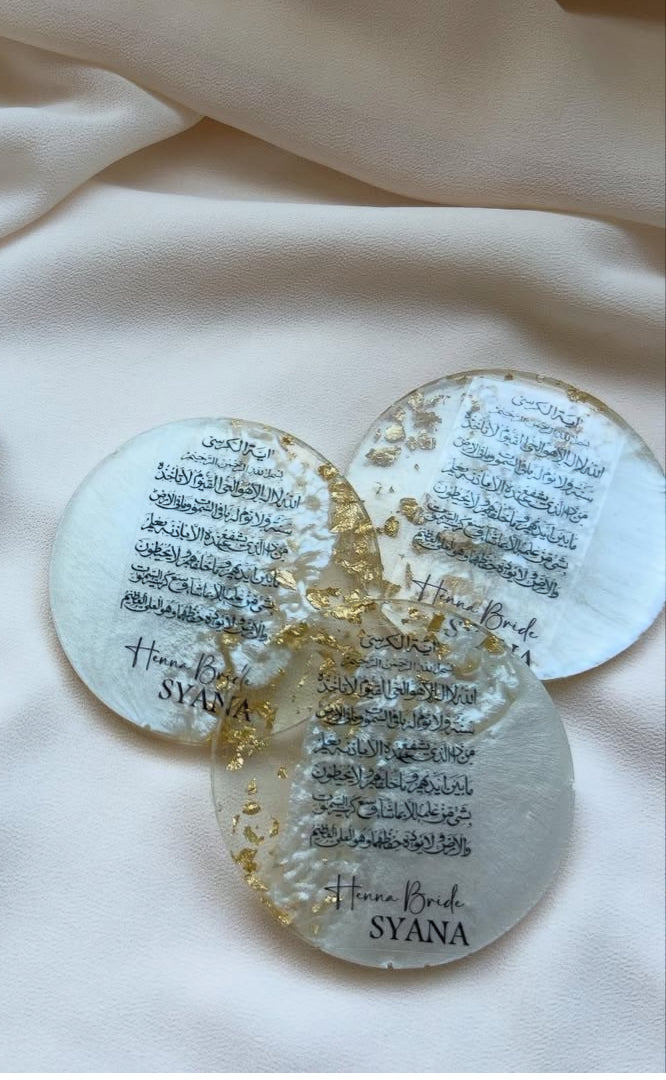 آية الكرسي
بسم الله الرحمن الرحيم
الله لا إله إلا هو الحي القيوم لا تأخذه
سنة ولا نوم له ما في السموات وما في الأرض
من ذا الذي يشفع عنده إلا بإذنه يعلم
ما بين أيديهم وما خلفهم ولا يحيطون
بشيء من علمه إلا بما شاء وسع كرسيه السموات
والأرض ولا يؤده حفظهما وهو العلي العظيم
Henna Bride
SYANA
آية الكرسي
بسم الله الرحمن الرحيم
الله لا إله إلا هو الحي القيوم لا تأخذه
سنة ولا نوم له ما في السموات وما في الأرض
من ذا الذي يشفع عنده إلا بإذنه يعلم
ما بين أيديهم وما خلفهم ولا يحيطون
بشيء من علمه إلا بما شاء وسع كرسيه السموات
والأرض ولا يؤده حفظهما وهو العلي العظيم
Henna Bride
آية الكرسي
بسم الله الرحمن الرحيم
الله لا إله إلا هو الحي القيوم لا تأخذه
سنة ولا نوم له ما في السموات وما في الأرض
من ذا الذي يشفع عنده إلا بإذنه يعلم
ما بين أيديهم وما خلفهم ولا يحيطون
بشيء من علمه إلا بما شاء وسع كرسيه السموات
والأرض ولا يؤده حفظهما وهو العلي العظيم
Henna Bride
SYANA